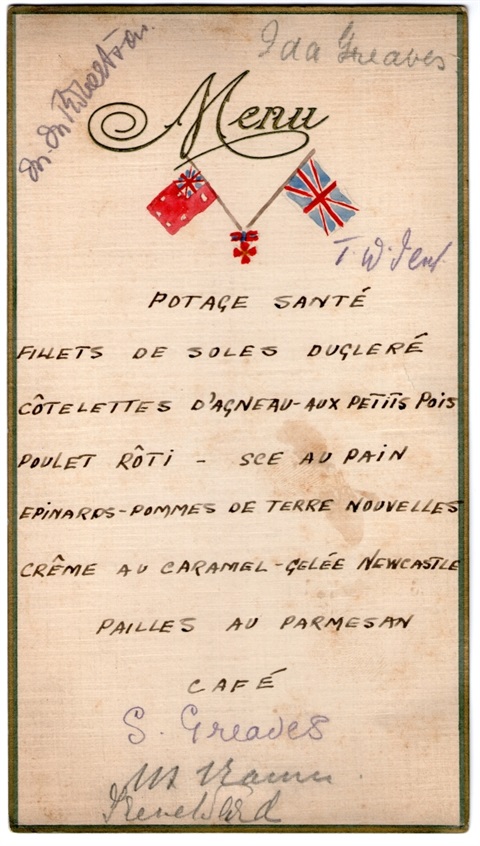 Ida Greaves
Robertson.
Menu
POTAGE SANTÉ
FILLETS DE SOLES DUGLERÉ
CÔTELETTES D'AGNEAU-AUX PETITS POIS
POULET RÔTI - SCE AU PAIN
EPINARDS-POMMES DE TERRE NOUVELLES
CRÊME AU CARAMEL-GELÉE NEWCASTLE
PAILLES AU PARMESAN
CAFÉ
S. Greaves